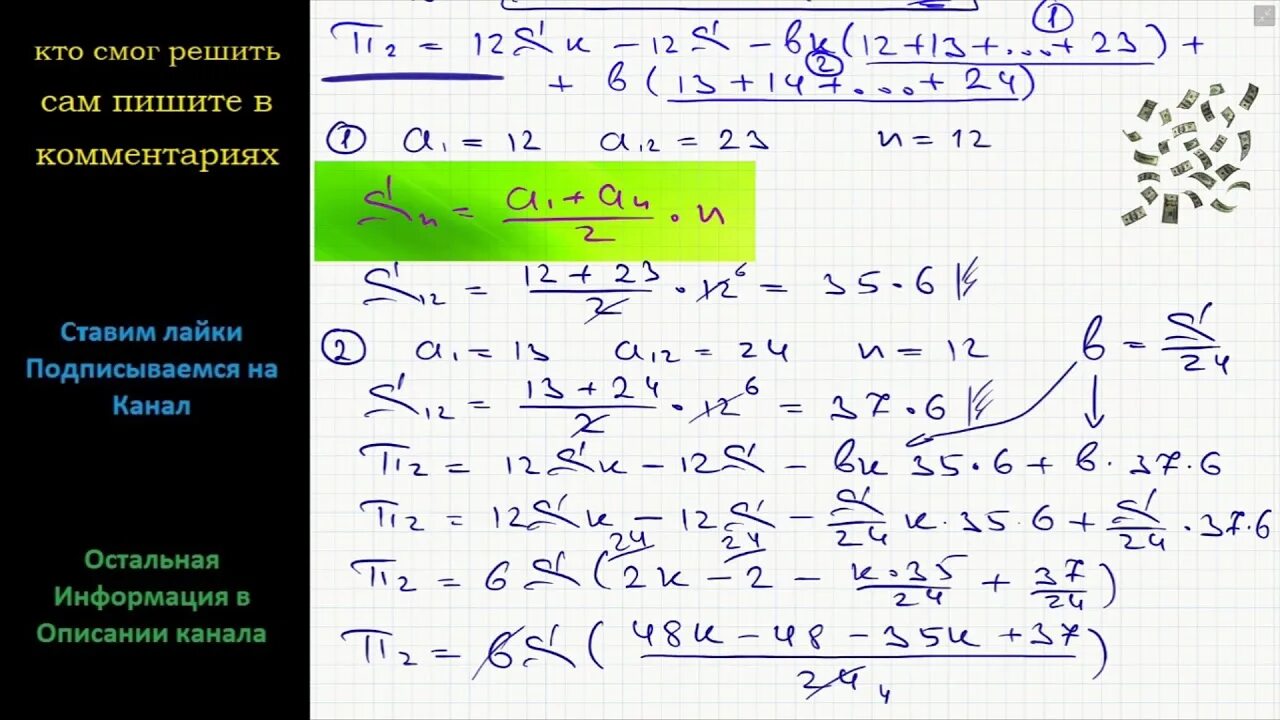 кто смог решить
сам пишите в
комментариях
Ставим лайки
Подписываемся на
Канал
Остальная
Информация в
Описании канала
П₂ = 12Sк − 12S − вк(12+13+...+23) +
+ в(13+14+...+24)
① a₁ = 12 a₁₂ = 23 n = 12
Sₙ = (a₁ + aₙ)/2 · n
S₁₂ = (12 + 23)/2 · 12 6 = 35·6
② a₁ = 13 a₁₂ = 24 n = 12
в = S/24
S₁₂ = (13 + 24)/2 · 12 6 = 37·6
П₂ = 12Sк − 12S − вк 35·6 + в·37·6
П₂ = 12Sк − 12S − S/24 к·35·6 + S/24 · 37·6
24 24
П₂ = 6S(2к − 2 − к·35/24 + 37/24)
П₂ = 6S((48к − 48 − 35к + 37)/24 4)
① ②